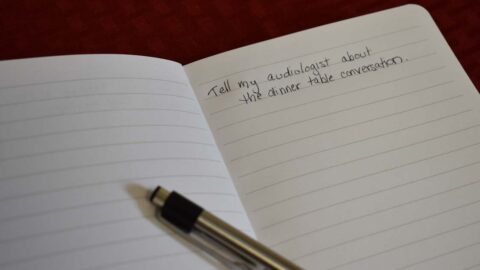 Tell my audiologist about
the dinner table conversation.